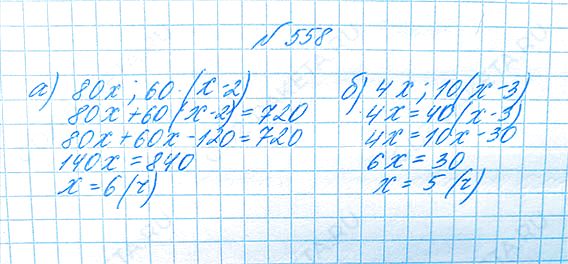 № 558
а) 80x; 60·(x-2)
80x+60(x-2)=720
80x+60x-120=720
140x=840
x=6(ч)
б) 4x; 10(x-3)
4x=40(x-3)
4x=10x-30
6x=30
x=5(ч)